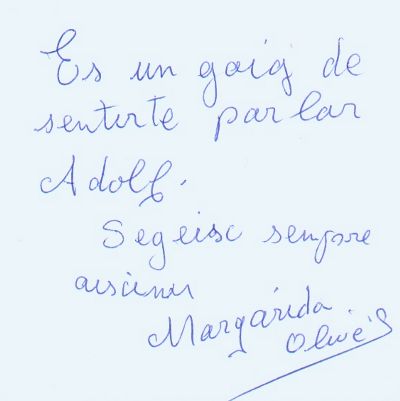 Es un goig de
sentirte parlar
Adolf.
Segeisc sempre
aiscinur
Margarida
Olivé